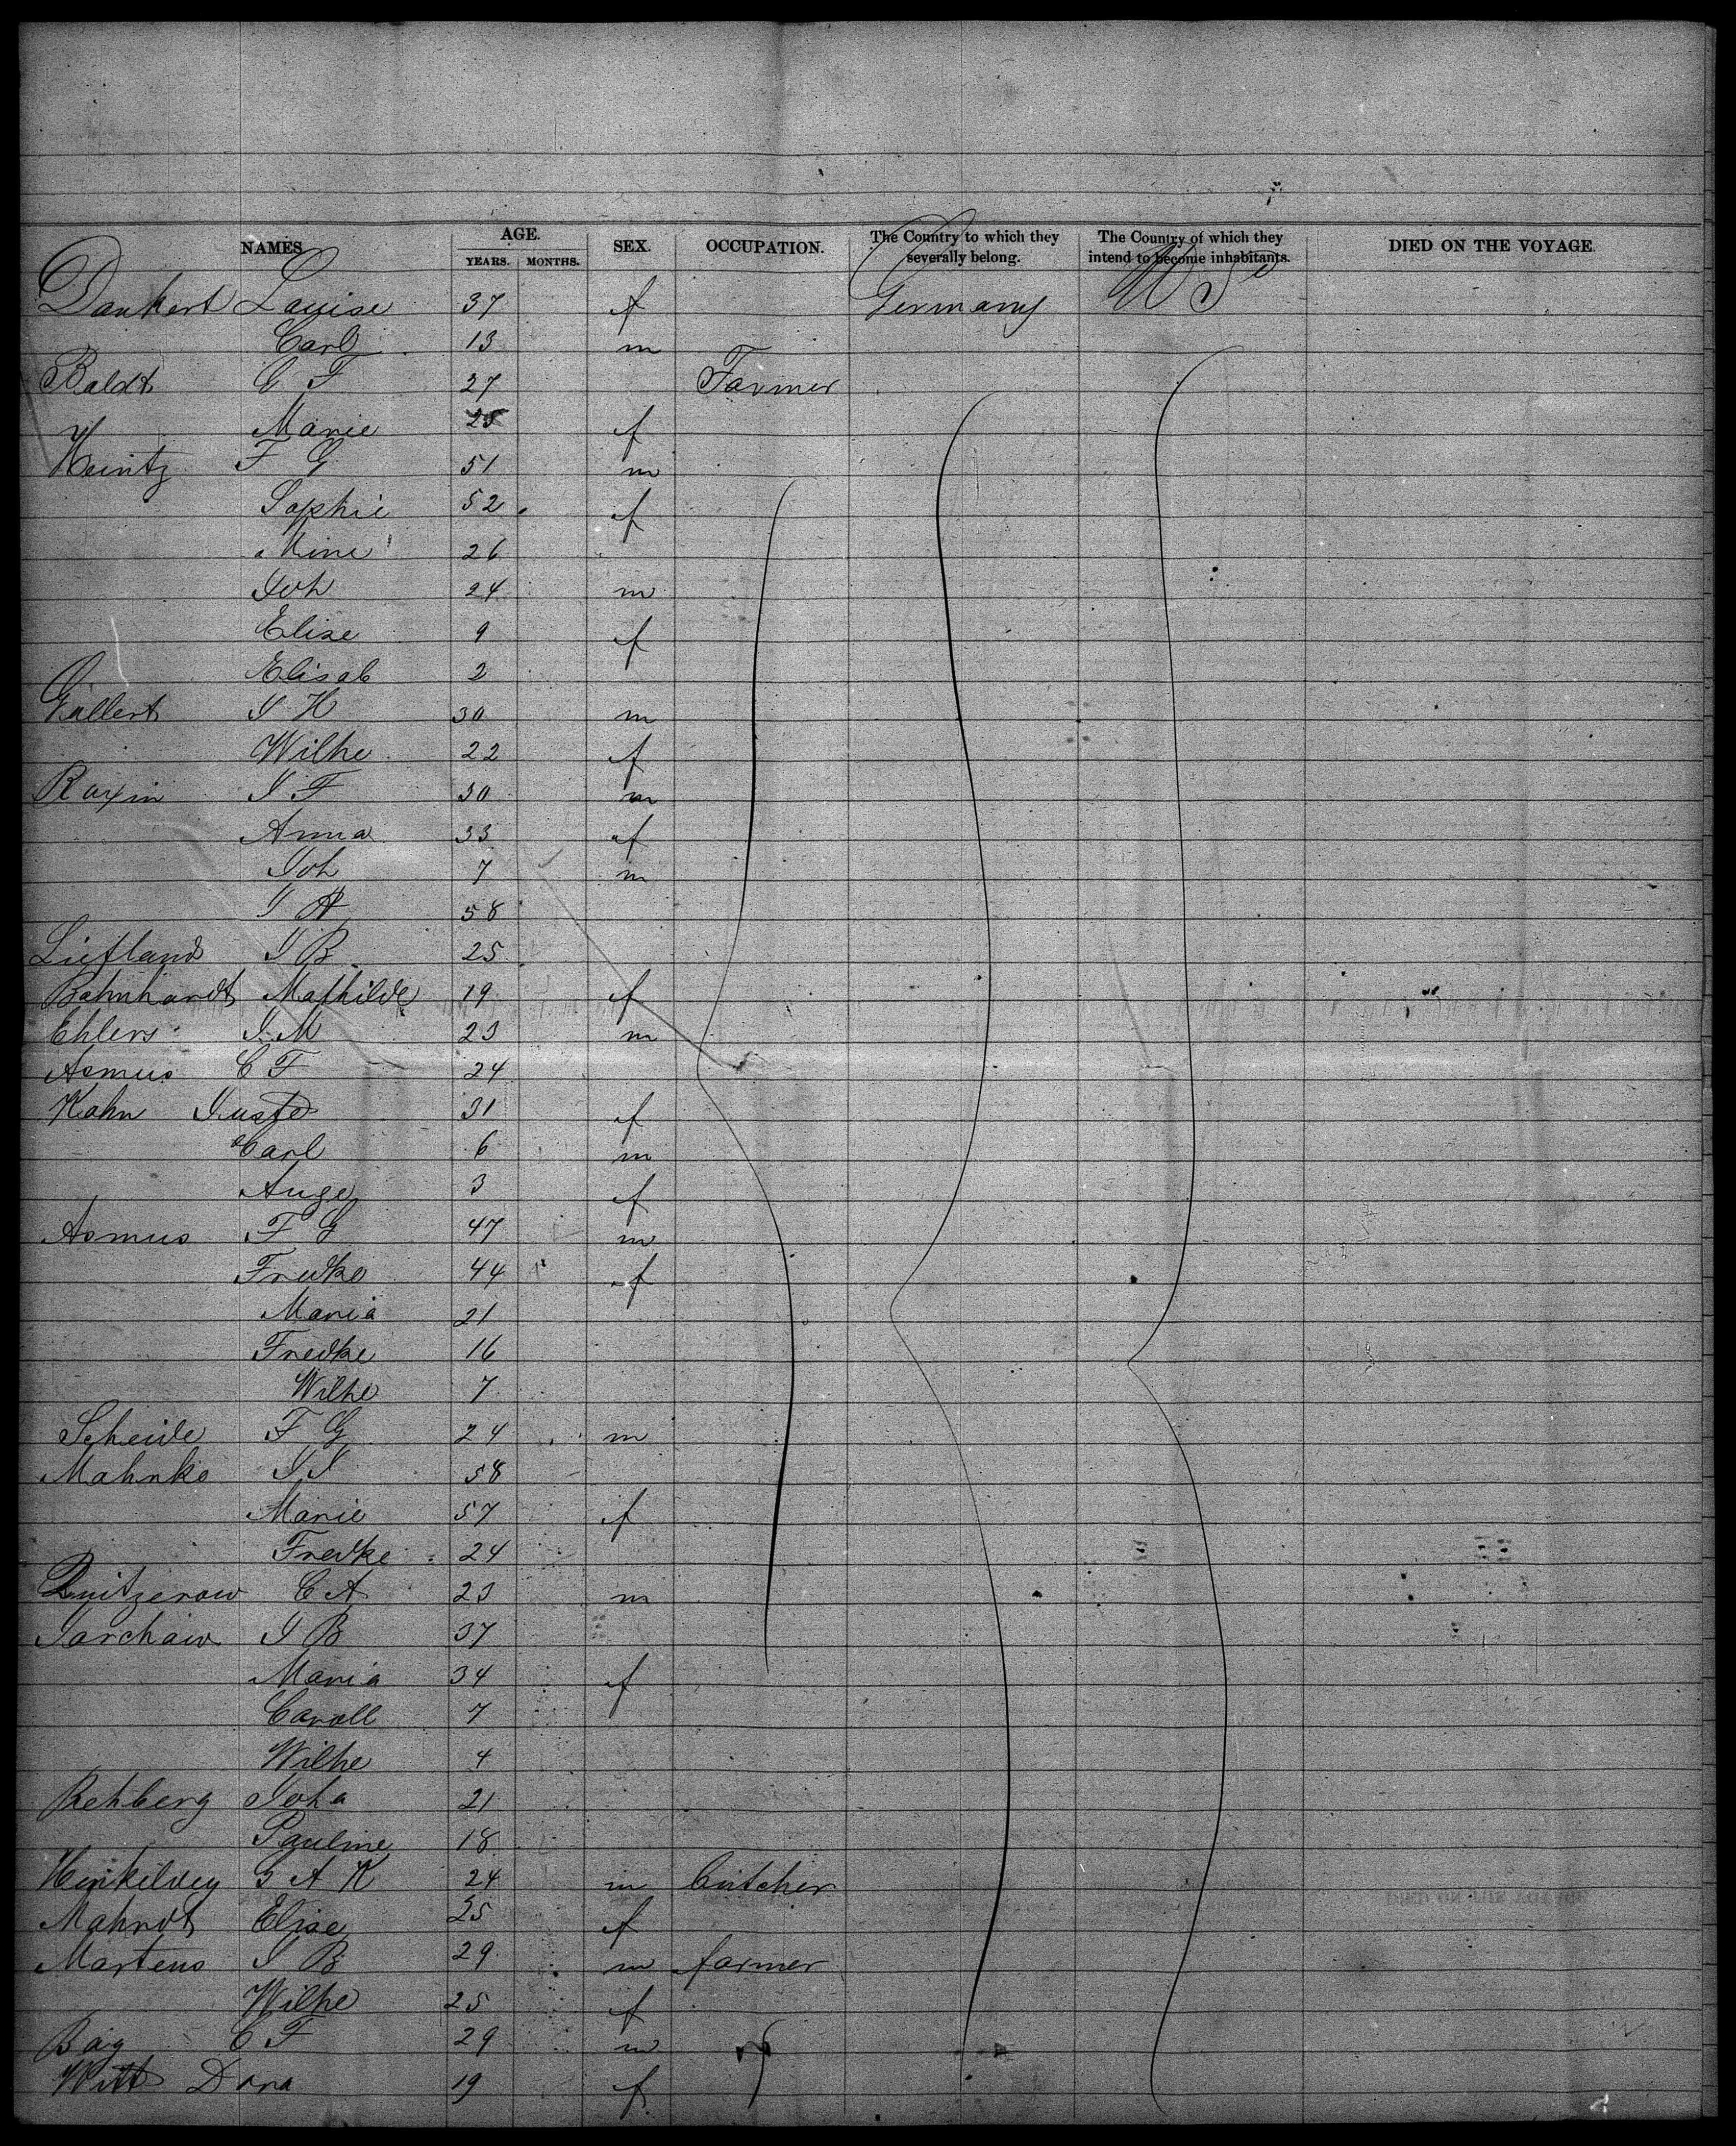 NAMES. AGE. SEX. OCCUPATION. The Country to which they severally belong. The Country of which they intend to become inhabitants. DIED ON THE VOYAGE.
YEARS. MONTHS.
Dankert Louise 37 f Germany U S
Carl 13 m
Baldt C F 27 Farmer
Marie 25 f
Heintz F G 51 m
Sophie 52 f
Mine 26
Joh 24 m
Elise 9 f
Elisab 2
Gallert J H 30 m
Wilhe 22 f
Raxin J F 30 m
Anna 33 f
Joh 7 m
J H 58
Liefland J B 25
Bahnhardt Mathilde 19 f
Ehlers J M 23 m
Asmus C F 24
Kahn Juste 31 f
Carl 6 m
Auge 3 f
Asmus F G 47 m
Fredke 44 f
Maria 21
Fredke 16
Wilhe 7
Scheide F G 24 m
Mahnke J J 58
Marie 57 f
Fredke 24
Quitzerow C A 23 m
Jarchaw J B 37
Maria 34 f
Caroll 7
Wilhe 4
Rehberg Joha 21
Pauline 18
Hinkeldey G A K 24 m butcher
Mahndt Elise 25 f
Martens J B 29 m farmer
Wilhe 25 f
Bay C F 29 m
Witt Dora 19 f